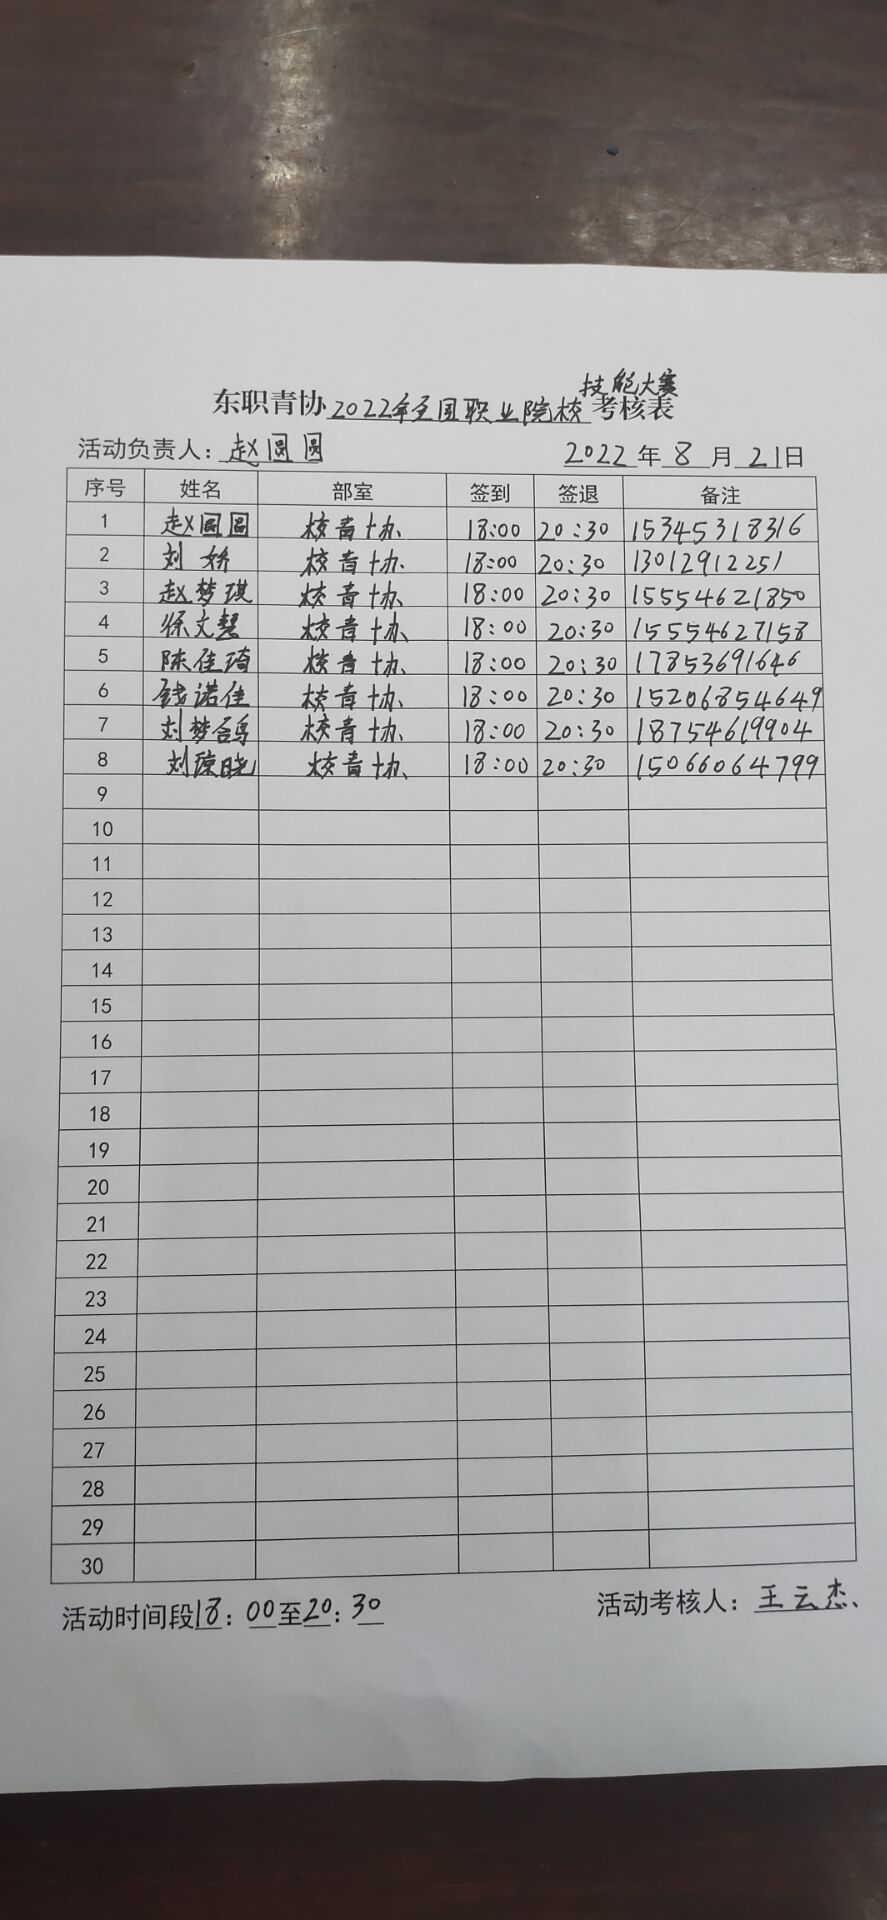 技能大赛
东职青协2022年全国职业院校考核表
活动负责人：赵圆圆 2022年8月21日
序号 姓名 部室 签到 签退 备注
1 赵圆圆 校青协 18:00 20:30 15345318316
2 刘娇 校青协 18:00 20:30 13012912251
3 赵梦琪 校青协 18:00 20:30 15554621850
4 徐文慧 校青协 18:00 20:30 15554627158
5 陈佳琦 校青协 18:00 20:30 17853691646
6 钱诺佳 校青协 18:00 20:30 15206854649
7 刘梦 校青协 18:00 20:30 18754619904
8 刘琼晓 校青协 18:00 20:30 15066064799
9
10
11
12
13
14
15
16
17
18
19
20
21
22
23
24
25
26
27
28
29
30
活动时间段18：00至20：30 活动考核人：王云杰